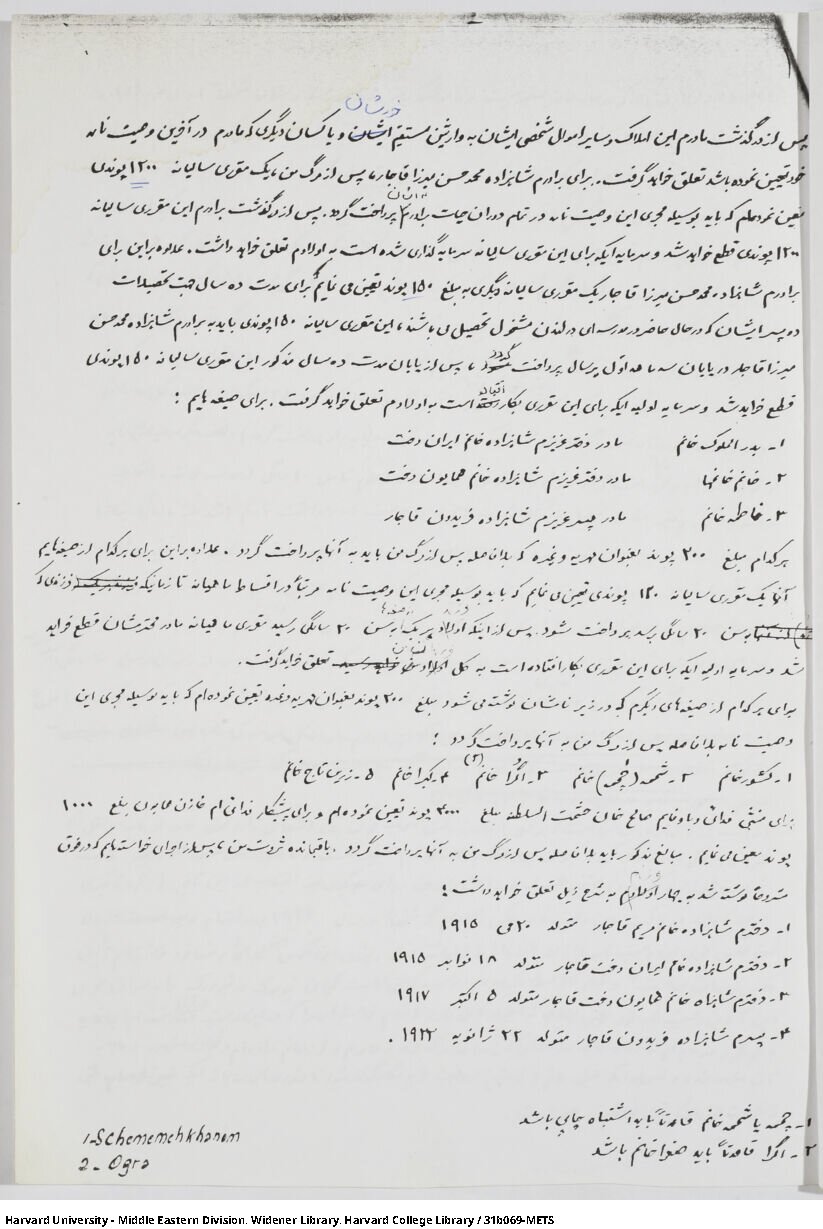 خودشان
پس از درگذشت مادرم این املاک و سایر اموال شخصی ایشان به وارثین مستقیم ایشان و یا کسان دیگری که مادرم در آخرین وصیت نامه
خود تعیین نموده باشد تعلق خواهد گرفت. برای برادرم شاهزاده محمد حسن میرزا قاجار، پس از مرگ من، یک مقرری سالیانه ۱۲۰۰ پوندی
تعیین نموده‌ام که باید بوسیله مجری این وصیت نامه در تمام دوران حیات برادرم پرداخت گردد. پس از درگذشت برادرم این مقرری سالیانه
۱۲۰۰ پوندی قطع خواهد شد و سرمایه ایکه برای این مقرری سالیانه سرمایه گذاری شده است به اولادم تعلق خواهد داشت. علاوه براین برای
برادرم شاهزاده محمد حسن میرزا قاجار یک مقرری سالیانه دیگری به مبلغ ۱۵۰ پوند تعیین می نمایم برای مدت ده سال جهت تحصیلات
ده پسر ایشان که در حال حاضر در مدرسه ای در لندن مشغول تحصیل می باشند، این مقرری سالیانه ۱۵۰ پوندی باید به برادرم شاهزاده محمد حسن
میرزا قاجار در پایان سه ماهه اول هر سال پرداخت گردد، پس از پایان مدت ده سال مذکور این مقرری سالیانه ۱۵۰ پوندی
قطع خواهد شد و سرمایه اولیه ایکه برای این مقرری بکار افتاده است به اولادم تعلق خواهد گرفت. برای صیغه هایم:
۱- بدر الملوک خانم مادر دختر عزیزم شاهزاده خانم ایران دخت
۲- خانم خانمها مادر دختر عزیزم شاهزاده خانم همایون دخت
۳- فاطمه خانم مادر پسر عزیزم شاهزاده فریدون قاجار
هرکدام مبلغ ۲۰۰ پوند بعنوان مهریه و غیره که بلافاصله پس از مرگ من باید به آنها پرداخت گردد. علاوه براین برای هرکدام از صیغه‌هایم
آنها یک مقرری سالیانه ۱۲۰ پوندی تعیین می نمایم که باید بوسیله مجری این وصیت نامه مرتباً در اقساط ماهیانه تا زمانیکه فرزندی که
به سن ۲۰ سالگی برسد پرداخت شود. پس از اینکه هر یک به سن ۲۰ سالگی رسید مقرری ماهیانه مادر محترمشان قطع خواهد
شد و سرمایه اولیه ایکه برای این مقرری بکار افتاده است به کل تعلق خواهد گرفت.
برای هرکدام از صیغه‌های دیگرم که در زیر نامشان نوشته می شود مبلغ ۲۰۰ پوند بعنوان مهریه و غیره تعیین نموده‌ام که باید بوسیله مجری این
وصیت نامه بلافاصله پس از مرگ من به آنها پرداخت گردد:
۱- کشور خانم ۲- شمسه (چمسه) خانم ۳- اگرا خانم (۲) ۴- کبرا خانم ۵- زرین تاج خانم
برای منشی فدائی و باوفایم صالح خان حشمت السلطنه مبلغ ۳۰۰۰ پوند تعیین نموده‌ام و برای پیشکار فدائی ام خازن همایون مبلغ ۱۰۰۰
پوند تعیین می نمایم. مبالغ مذکور باید بلافاصله پس از مرگ من به آنها پرداخت گردد. باقیمانده ثروت من، پس از اجرای خواسته‌هایم که در فوق
مشروحاً نوشته شد به چهار اولادم به شرح ذیل تعلق خواهد داشت:
۱- دخترم شاهزاده خانم مریم قاجار متولد ۲۰ می ۱۹۱۵
۲- دخترم شاهزاده خانم ایران دخت قاجار متولد ۱۸ نوامبر ۱۹۱۵
۳- دخترم شاهزاده خانم همایون دخت قاجار متولد ۵ اکتبر ۱۹۱۷
۴- پسرم شاهزاده فریدون قاجار متولد ۲۲ ژانویه ۱۹۲۲.
۱- چمسه یا شمسه خانم قاعدتاً باید اشتباه چاپی باشد
۲- اگرا قاعدتاً باید صغرا خانم باشد
1-Schememehkhanom
2- Ogra
Harvard University - Middle Eastern Division. Widener Library. Harvard College Library / 31b069-METS